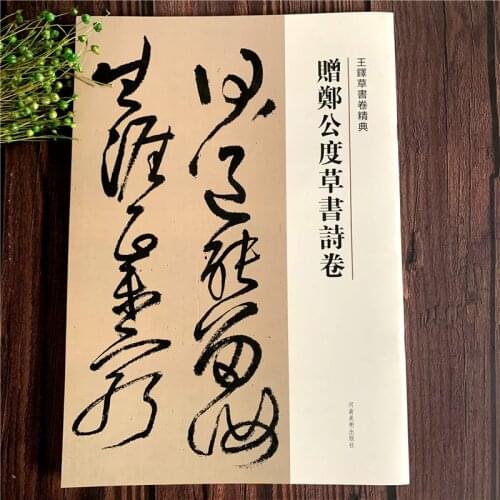 王鐸草書卷精典
贈鄭公度草書詩卷
河南美術出版社
道能留
生涯